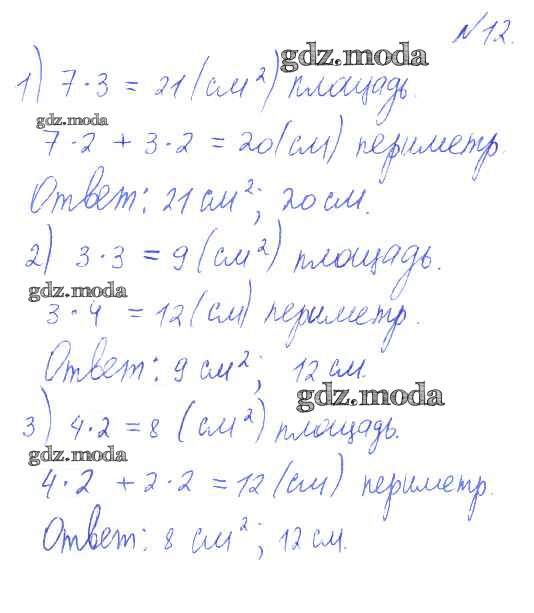 №12.
gdz.moda
1) 7·3 = 21 (см²) площадь.
gdz.moda
7·2 + 3·2 = 20(см) периметр.
Ответ: 21 см²; 20 см.
2) 3·3 = 9 (см²) площадь.
gdz.moda
3·4 = 12 (см) периметр.
Ответ: 9 см²; 12 см.
gdz.moda
3) 4·2 = 8 (см²) площадь.
gdz.moda
4·2 + 2·2 = 12 (см) периметр.
Ответ: 8 см²; 12 см.